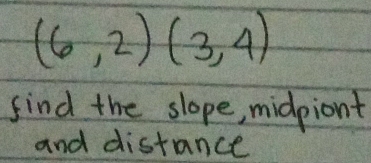 (6,2) (3,4)
find the slope, midpiont
and distance